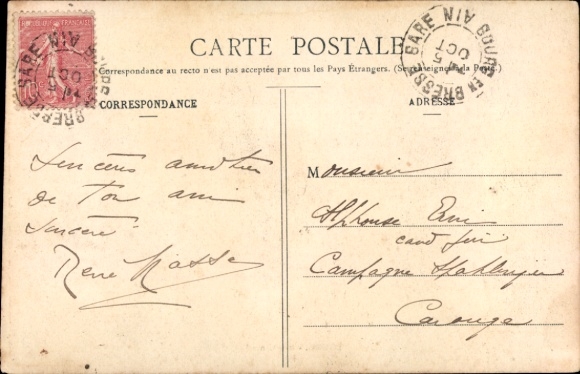 RÉPUBLIQUE FRANÇAISE
10
BOURG EN BRESSE GARE AIN
OCT
CARTE POSTALE
BOURG EN BRESSE GARE AIN
5
OCT
Correspondance au recto n'est pas acceptée par tous les Pays Étrangers. (Se renseigner à la Poste)
CORRESPONDANCE
ADRESSE
Sincères amitiés
de ton ami
sincère
René Masse
Monsieur
Alphonse
cand jur
Campagne
Carouge